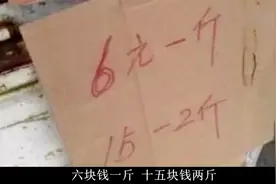 6元一斤
15-2斤
六块钱一斤 十五块钱两斤